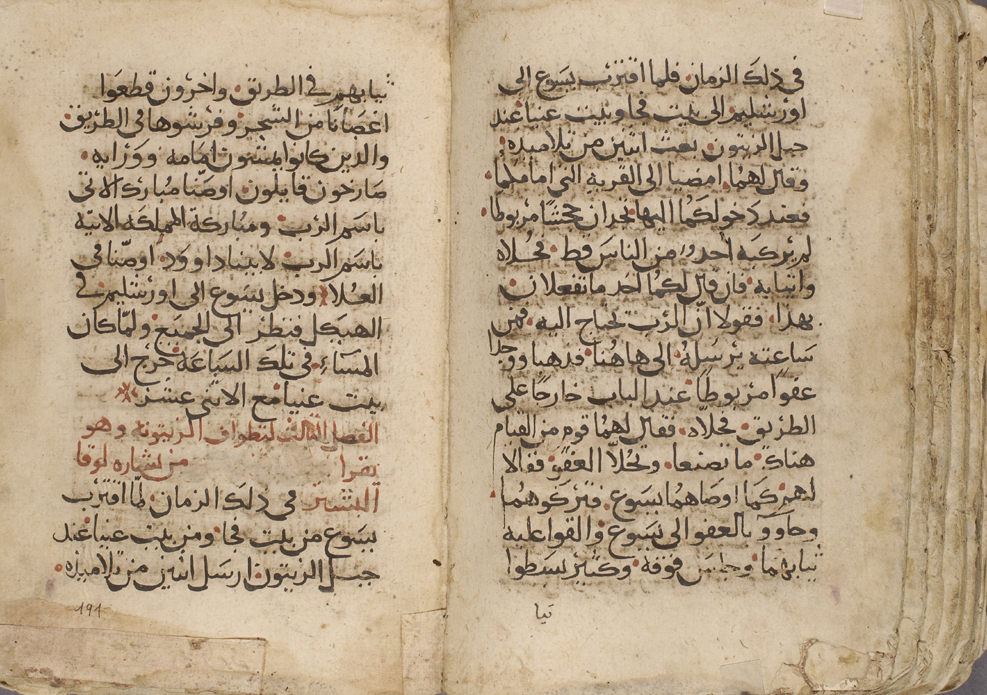 في ذلك الزمان فلما اقترب يسوع الى
اورشليم والى بيت فجا وبيت عنيا عند
جبل الزيتون بعث اثنين من تلاميذه
وقال لهما امضيا الى القرية التي امامكما
فعند دخولكما اليها تجدان جحشًا مربوطا
لم يركبه احد من الناس قط فحلاه
واتيا به فان قال لكما احد ما تفعلان
بهذا فقولا ان الرب يحتاج اليه فمن
ساعته يرسله الى هاهنا فذهبا ووجدا
عفوًا مربوطًا عند الباب خارجًا على
الطريق فحلاه فقال لهما قوم من القيام
هناك ما تصنعا وتحلا العفو فقالا
لهم كما اوصاهما يسوع فتركوهما
وجاوو بالعفو الى يسوع والقوا عليه
ثيابهما وجلس فوقه وكثير بسطوا
ثيا
ثيابهم في الطريق واخرون قطعوا
اغصانا من الشجر وفرشوها في الطريق
والذين كانوا يمشون امامه وورايه
صارخون قايلون اوصنا مبارك الاتي
باسم الرب ومباركة المملكه الاتيه
باسم الرب لابينا داوود اوصنا في
العلا ودخل يسوع الى اورشليم في
الهيكل فنظر الى الجميع ولما كان
المساء في تلك الساعة خرج الى
بيت عنيا مع الاثني عشر
الفصل الثالث لتطواف الزيتونه وهو
يقرا من بشاره لوقا
البشير في ذلك الزمان لما اقترب
يسوع من بيت فجا ومن بيت عنيا عند
جبل الزيتون ارسل اثنين من تلاميذه
191